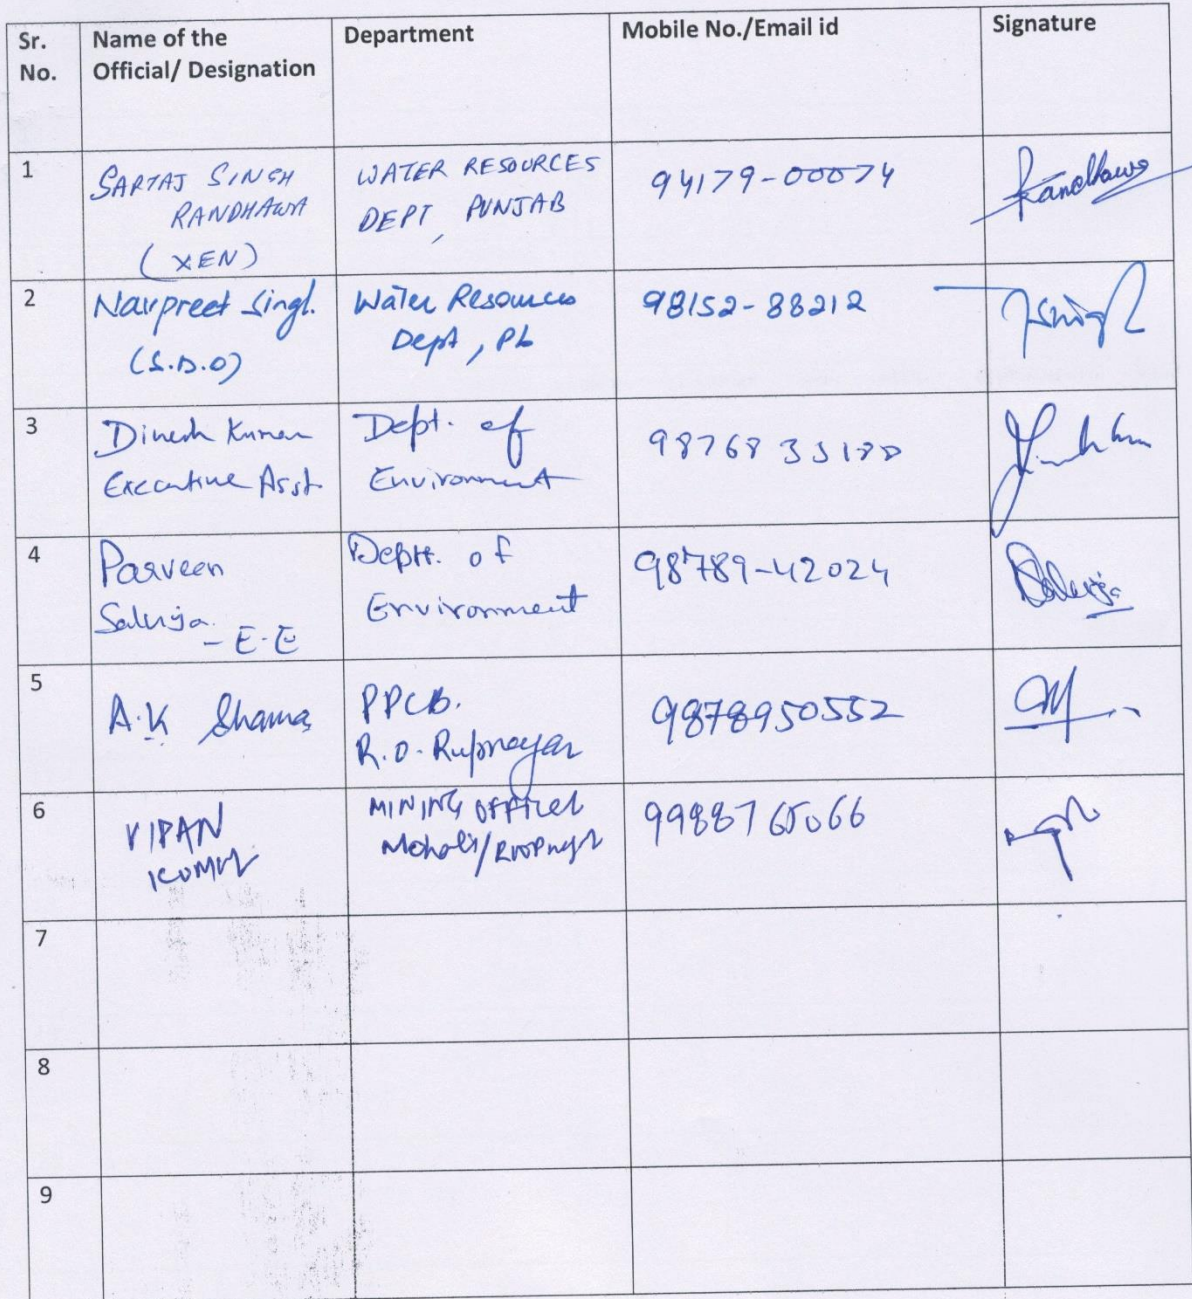 Sr. No.
Name of the Official/ Designation
Department
Mobile No./Email id
Signature
1
SARTAJ SINGH
RANDHAWA
(XEN)
WATER RESOURCES
DEPT, PUNJAB
94179-00074
Randhawa
2
Navpreet Singh
(S.D.O)
Water Resources
Dept, Pb
98152-88212
3
Dinesh Kumar
Executive Asst.
Dept. of
Environment
4
Parveen
Saluja
- E.E
Deptt. of
Environment
98789-42024
Saluja
5
A.K Sharma
PPCB.
R.O. Rupnagar
9878950552
6
VIPAN
KUMAR
MINING OFFICER
Mohali/
9988765066
7
8
9